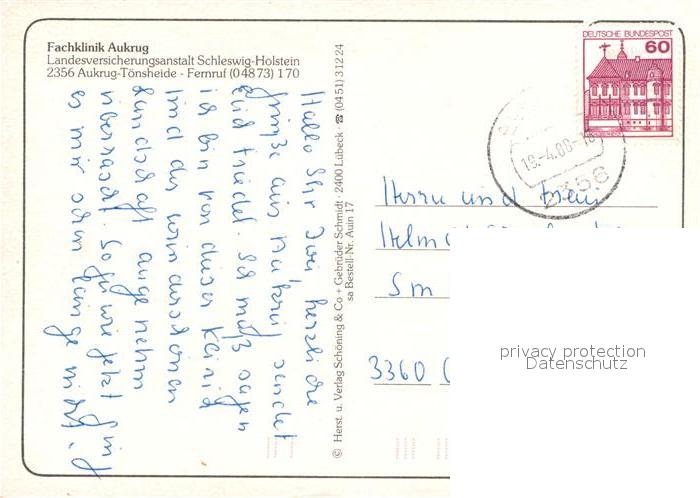 Fachklinik Aukrug
Landesversicherungsanstalt Schleswig-Holstein
2356 Aukrug-Tönsheide - Fernruf (0 48 73) 1 70
Hallo Ihr zwei herzliche
Grüße aus sendet
Euch Ich muß sagen
ich bin von dieser
und der wunderschönen
Landschaft angenehm
überrascht. So gut wie jetzt ging
es mir schon lange nicht.
© Herst. u. Verlag Schöning & Co + Gebrüder Schmidt · 2400 Lübeck · ☎ (04 51) 3 12 24
sa Bestell-Nr. Auin 17
DEUTSCHE BUNDESPOST
60
19.-4.88-18
2356
Herrn und Frau
3360
privacy protection
Datenschutz